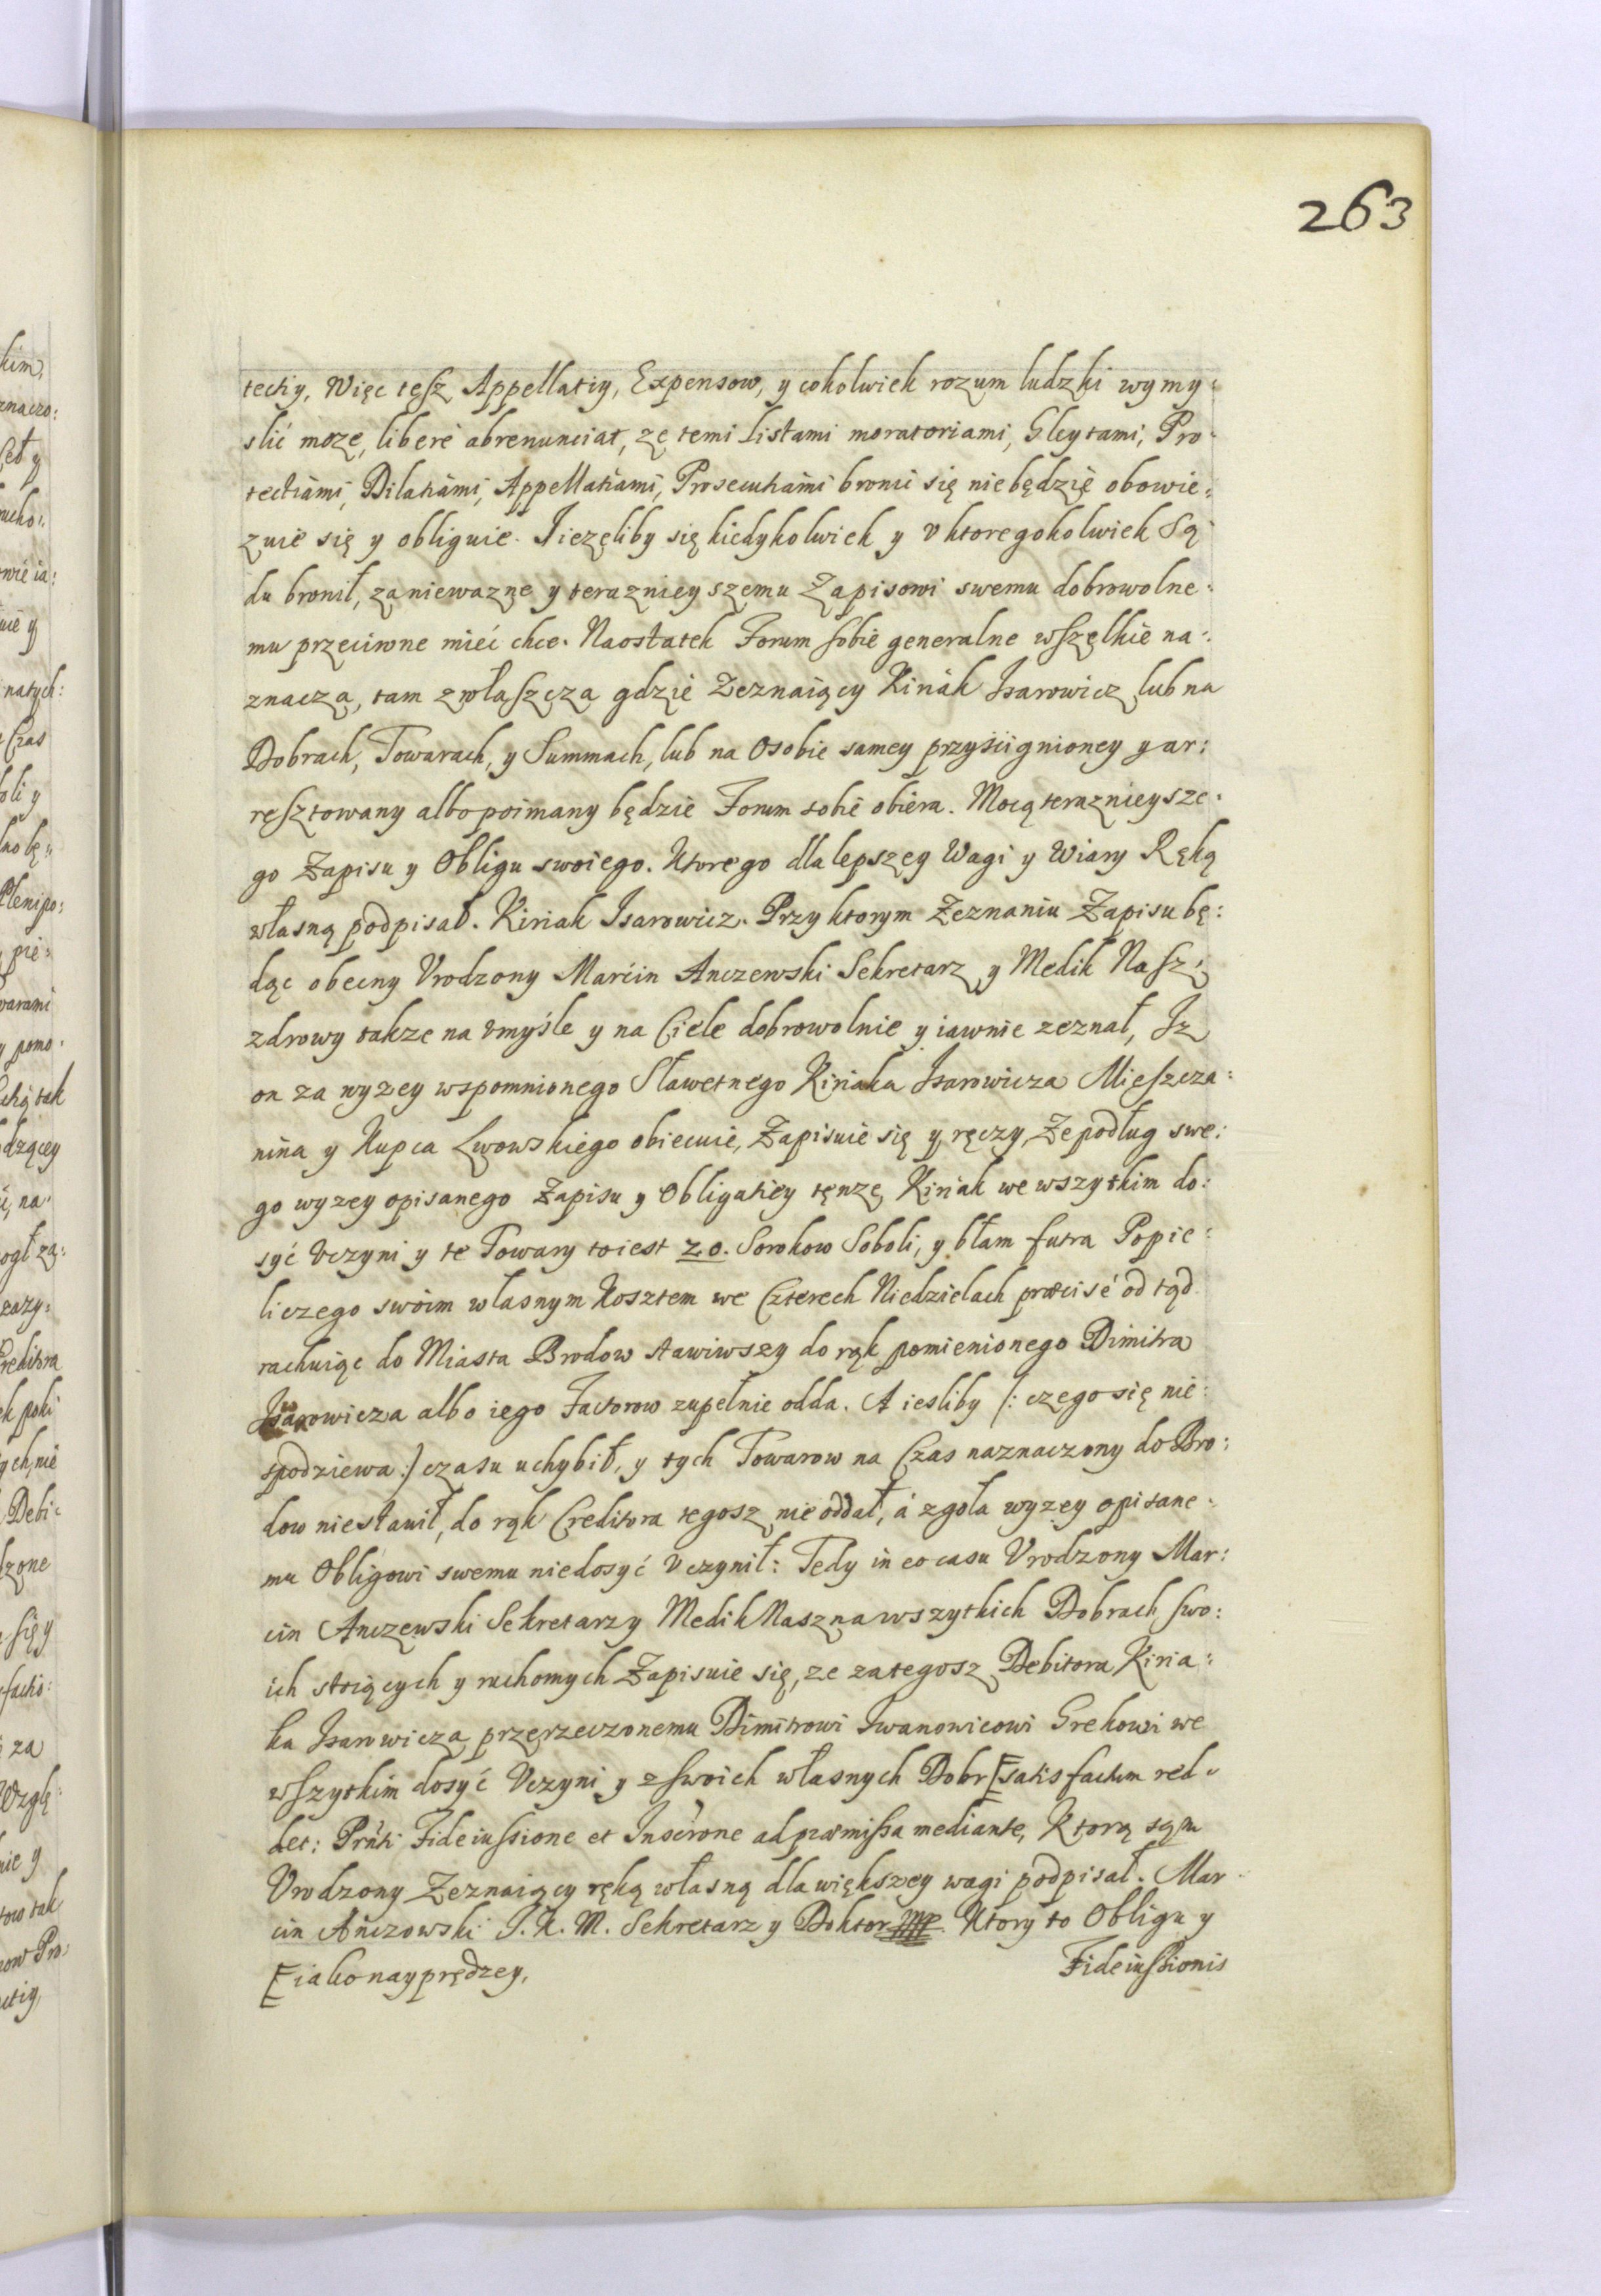 263
tectiy, Więc tesz Appellatiy, Expensow, y cokolwiek rozum ludzki wymy:
slić moze, liberè abrenunciat, ze temi Listami moratoriami, Gleytami, Pro:
tectiami, Dilatiami, Appellatiami, Prosecutiami bronić się niebędzie obowie:
zuie się y obliguie. Jiezeliby się kiedykolwiek y v ktoregokolwiek Są
du bronił, zaniewazne y terazniey szemu Zapisowi swemu dobrowolne:
mu przeciwne mieć chce. Naostatek Forum sobie generalne wszelkie na:
znacza, tam zwłaszcza gdzie Zeznaiący Kiriak Isarowicz lub na
Dobrach, Towarach, y Summach, lub na Osobie samey przyściignioney y ar:
resztowany albo poimany będzie Forum sobie obiera. Mocą teraznieysze:
go Zapisu y Obligu swoiego. Ktorego dla lepszey Wagi y Wiary Ręką
własną podpisał. Kiriak Isarowicz. Przy ktorym Zeznaniu Zapisu bę:
dąc obecny Vrodzony Marcin Anczewski Sekretarz y Medik Nasz,
zdrowy takze na vmyśle y na Ciele dobrowolnie y iawnie zeznał, Iz
on za wyzey wspomnionego Sławetnego Kiriaka Isarowicza Mieszcza:
nina y Kupca Lwowskiego obiecuie, Zapisuie się y ręczy, Ze podług swe:
go wyzey opisanego Zapisu y Obligatiey tenze Kiriak we wszytkim do:
syć Vczyni y te Towary toiest 20. Sorokow Soboli, y błam futra Popie:
liczego swoim własnym Kosztem we Czterech Niedzielach præcisè od tąd
rachuiąc do Miasta Brodow stawiwszy do rąk pomienionego Dimitra
Iwanowicza albo iego Factorow zupełnie odda. A iesliby /: czego się nie:
spodziewa :/ czasu uchybił, y tych Towarow na Czas naznaczony do Bro:
dow niestawił, do rąk Creditora tegosz nie oddał, á zgoła wyzey opisane:
mu Obligowi swemu niedosyć Vczynił: Tedy in eo casu Vrodzony Mar:
cin Anczewski Sekretarz y Medik Nasz na wszytkich Dobrach swo:
ich stoiących y ruchomych Zapisuie się, ze za tegosz Debitora Kiria:
ka Isarowicza przerzeczonemu Dimitrowi Iwanowicowi Grekowi we
wszytkim dosyć Vczyni y z swoich własnych Dobr [satisfactum red:
det: Prńti Fideiussione et Inscrone ad præmissa mediante, Ktorą sąm
Vrodzony Zeznaiący ręką własną dla większey wagi podpisał. Mar:
cin Anczowski J. K. M. Sekretarz y Doktor mp. Ktory to Obligu y
[iako nayprędzey, Fideiussionis